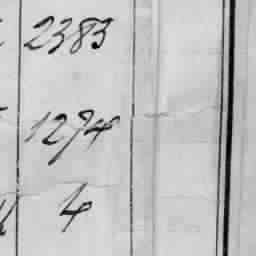 2383
1274
4